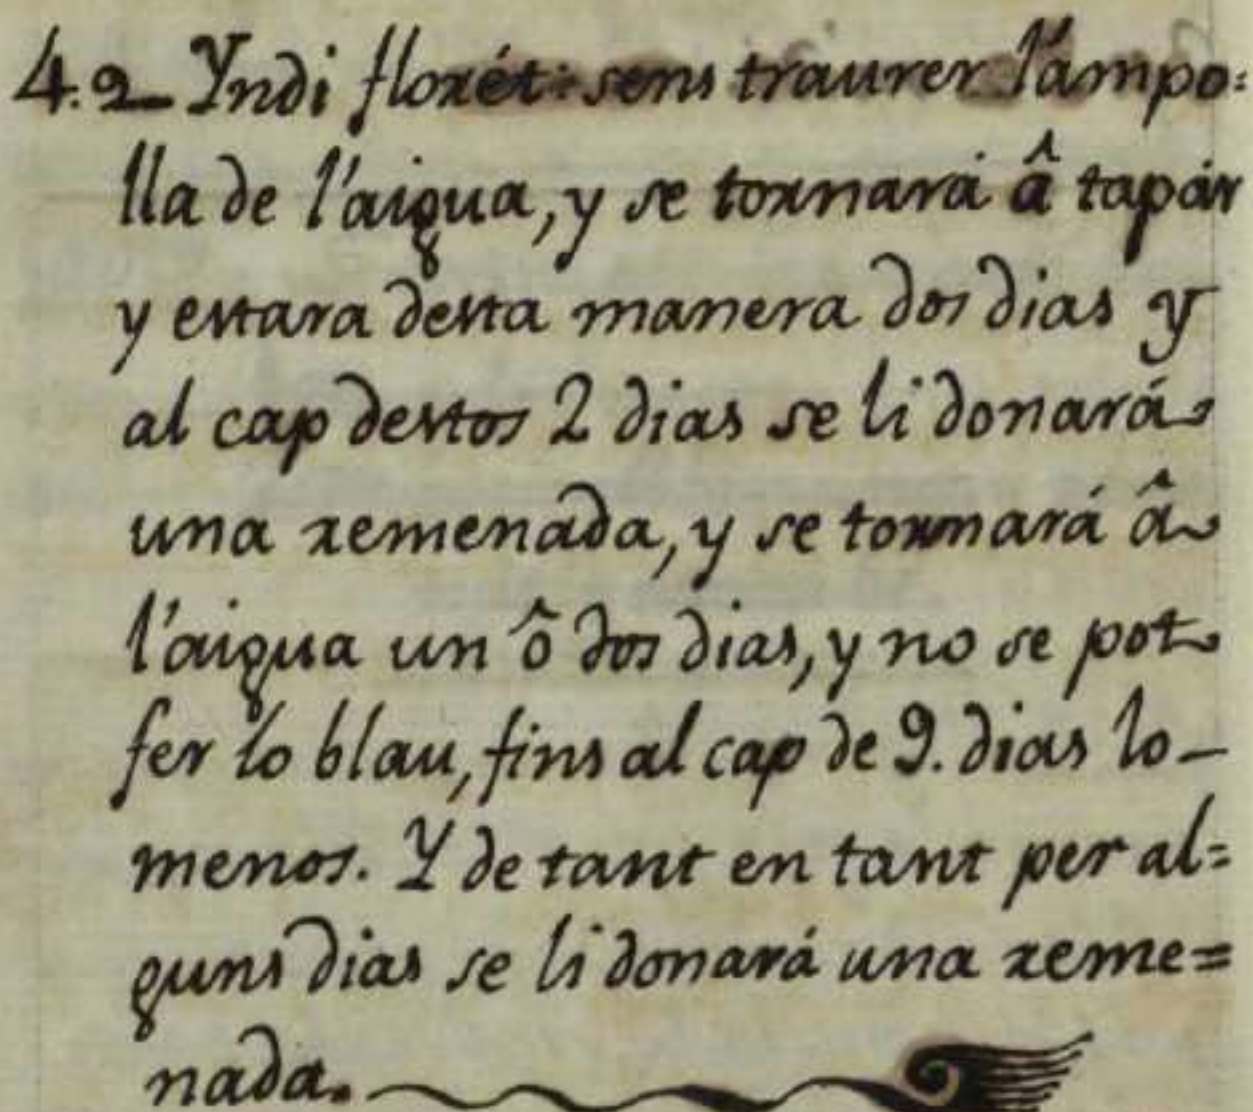 4.2_ Yndi florét: sens traurer l'ampo:
lla de l'aigua, y se tornará â tapár
y estara desta manera dos dias y
al cap destos 2 dias se li donará
una remenada, y se tornará â
l'aigua un ô dos dias, y no se pot
fer lo blau, fins al cap de 9. dias lo-
menos. Y de tant en tant per al=
guns dias se li donará una reme=
nada.